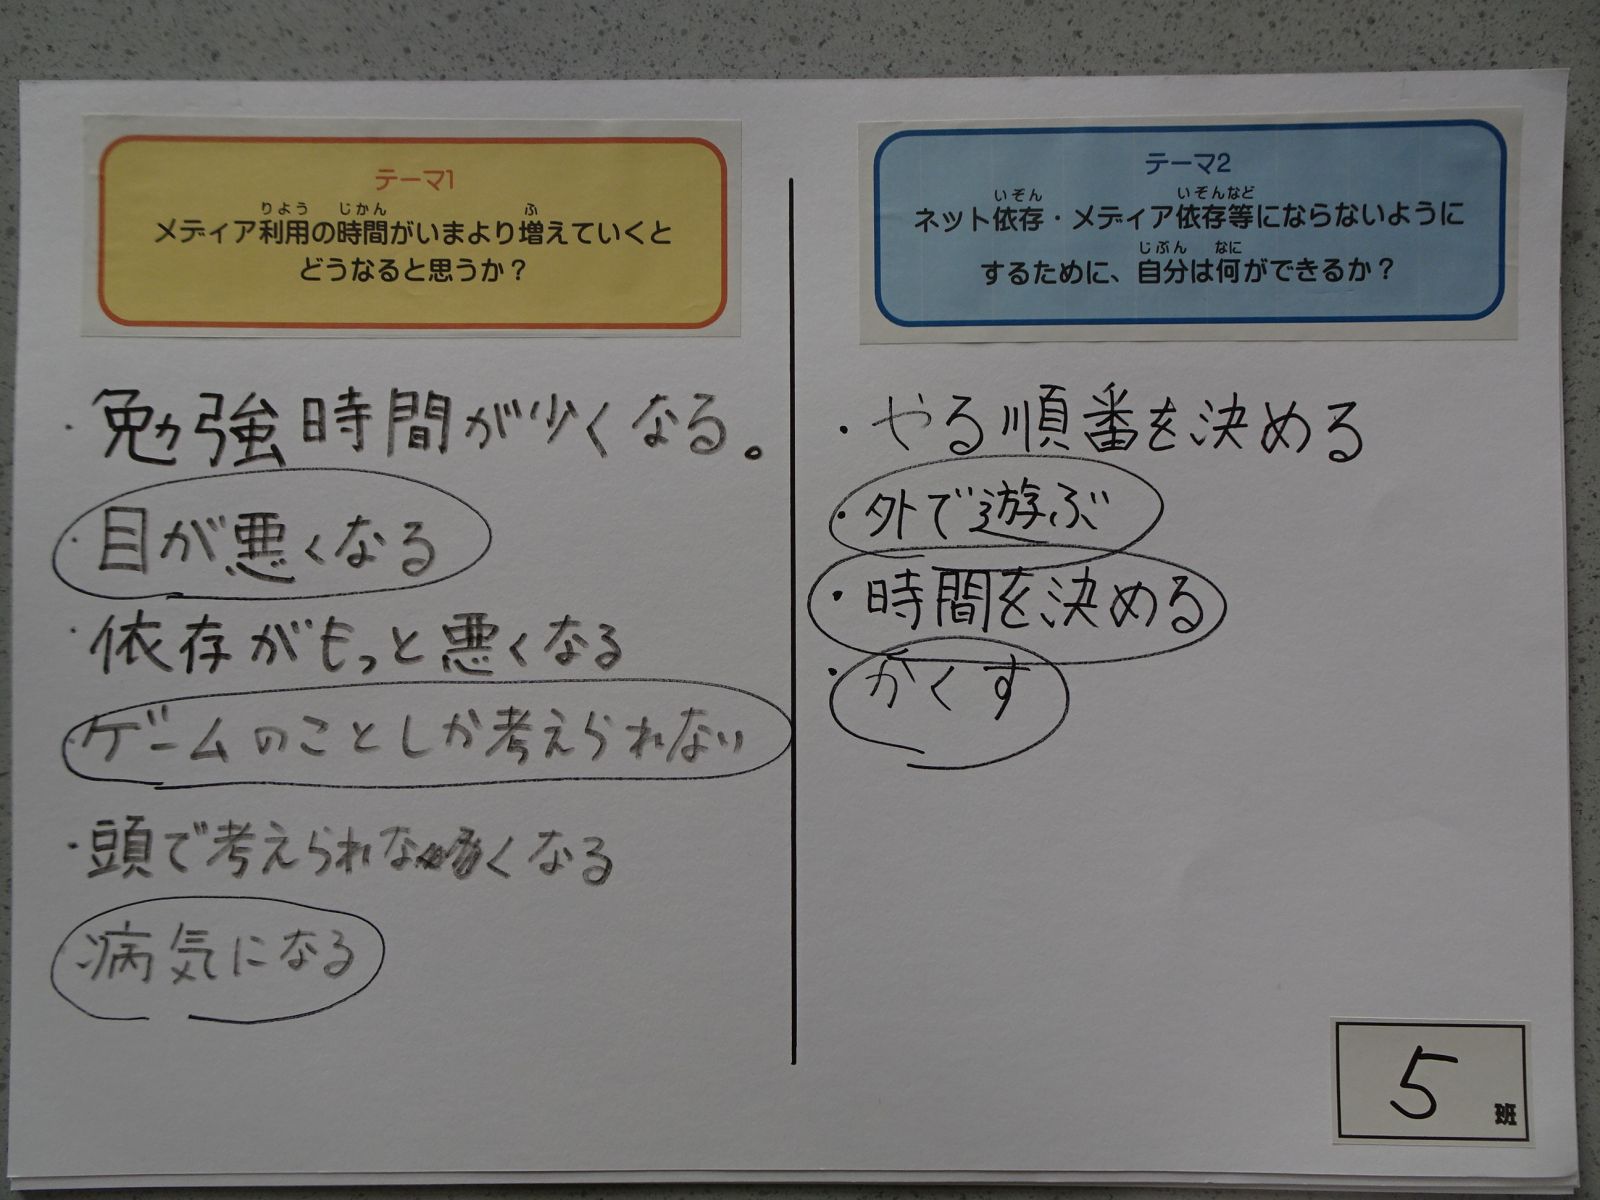 テーマ1
りよう じかん ふ
メディア利用の時間がいまより増えていくと
どうなると思うか？
・勉強時間が少くなる。
・目が悪くなる
・依存がもっと悪くなる
ゲームのことしか考えられない
・頭で考えられなくなる
・病気になる
テーマ2
いぞん いぞんなど
ネット依存・メディア依存等にならないように
じぶん なに
するために、自分は何ができるか？
・やる順番を決める
・外で遊ぶ
・時間を決める
・かくす
5班